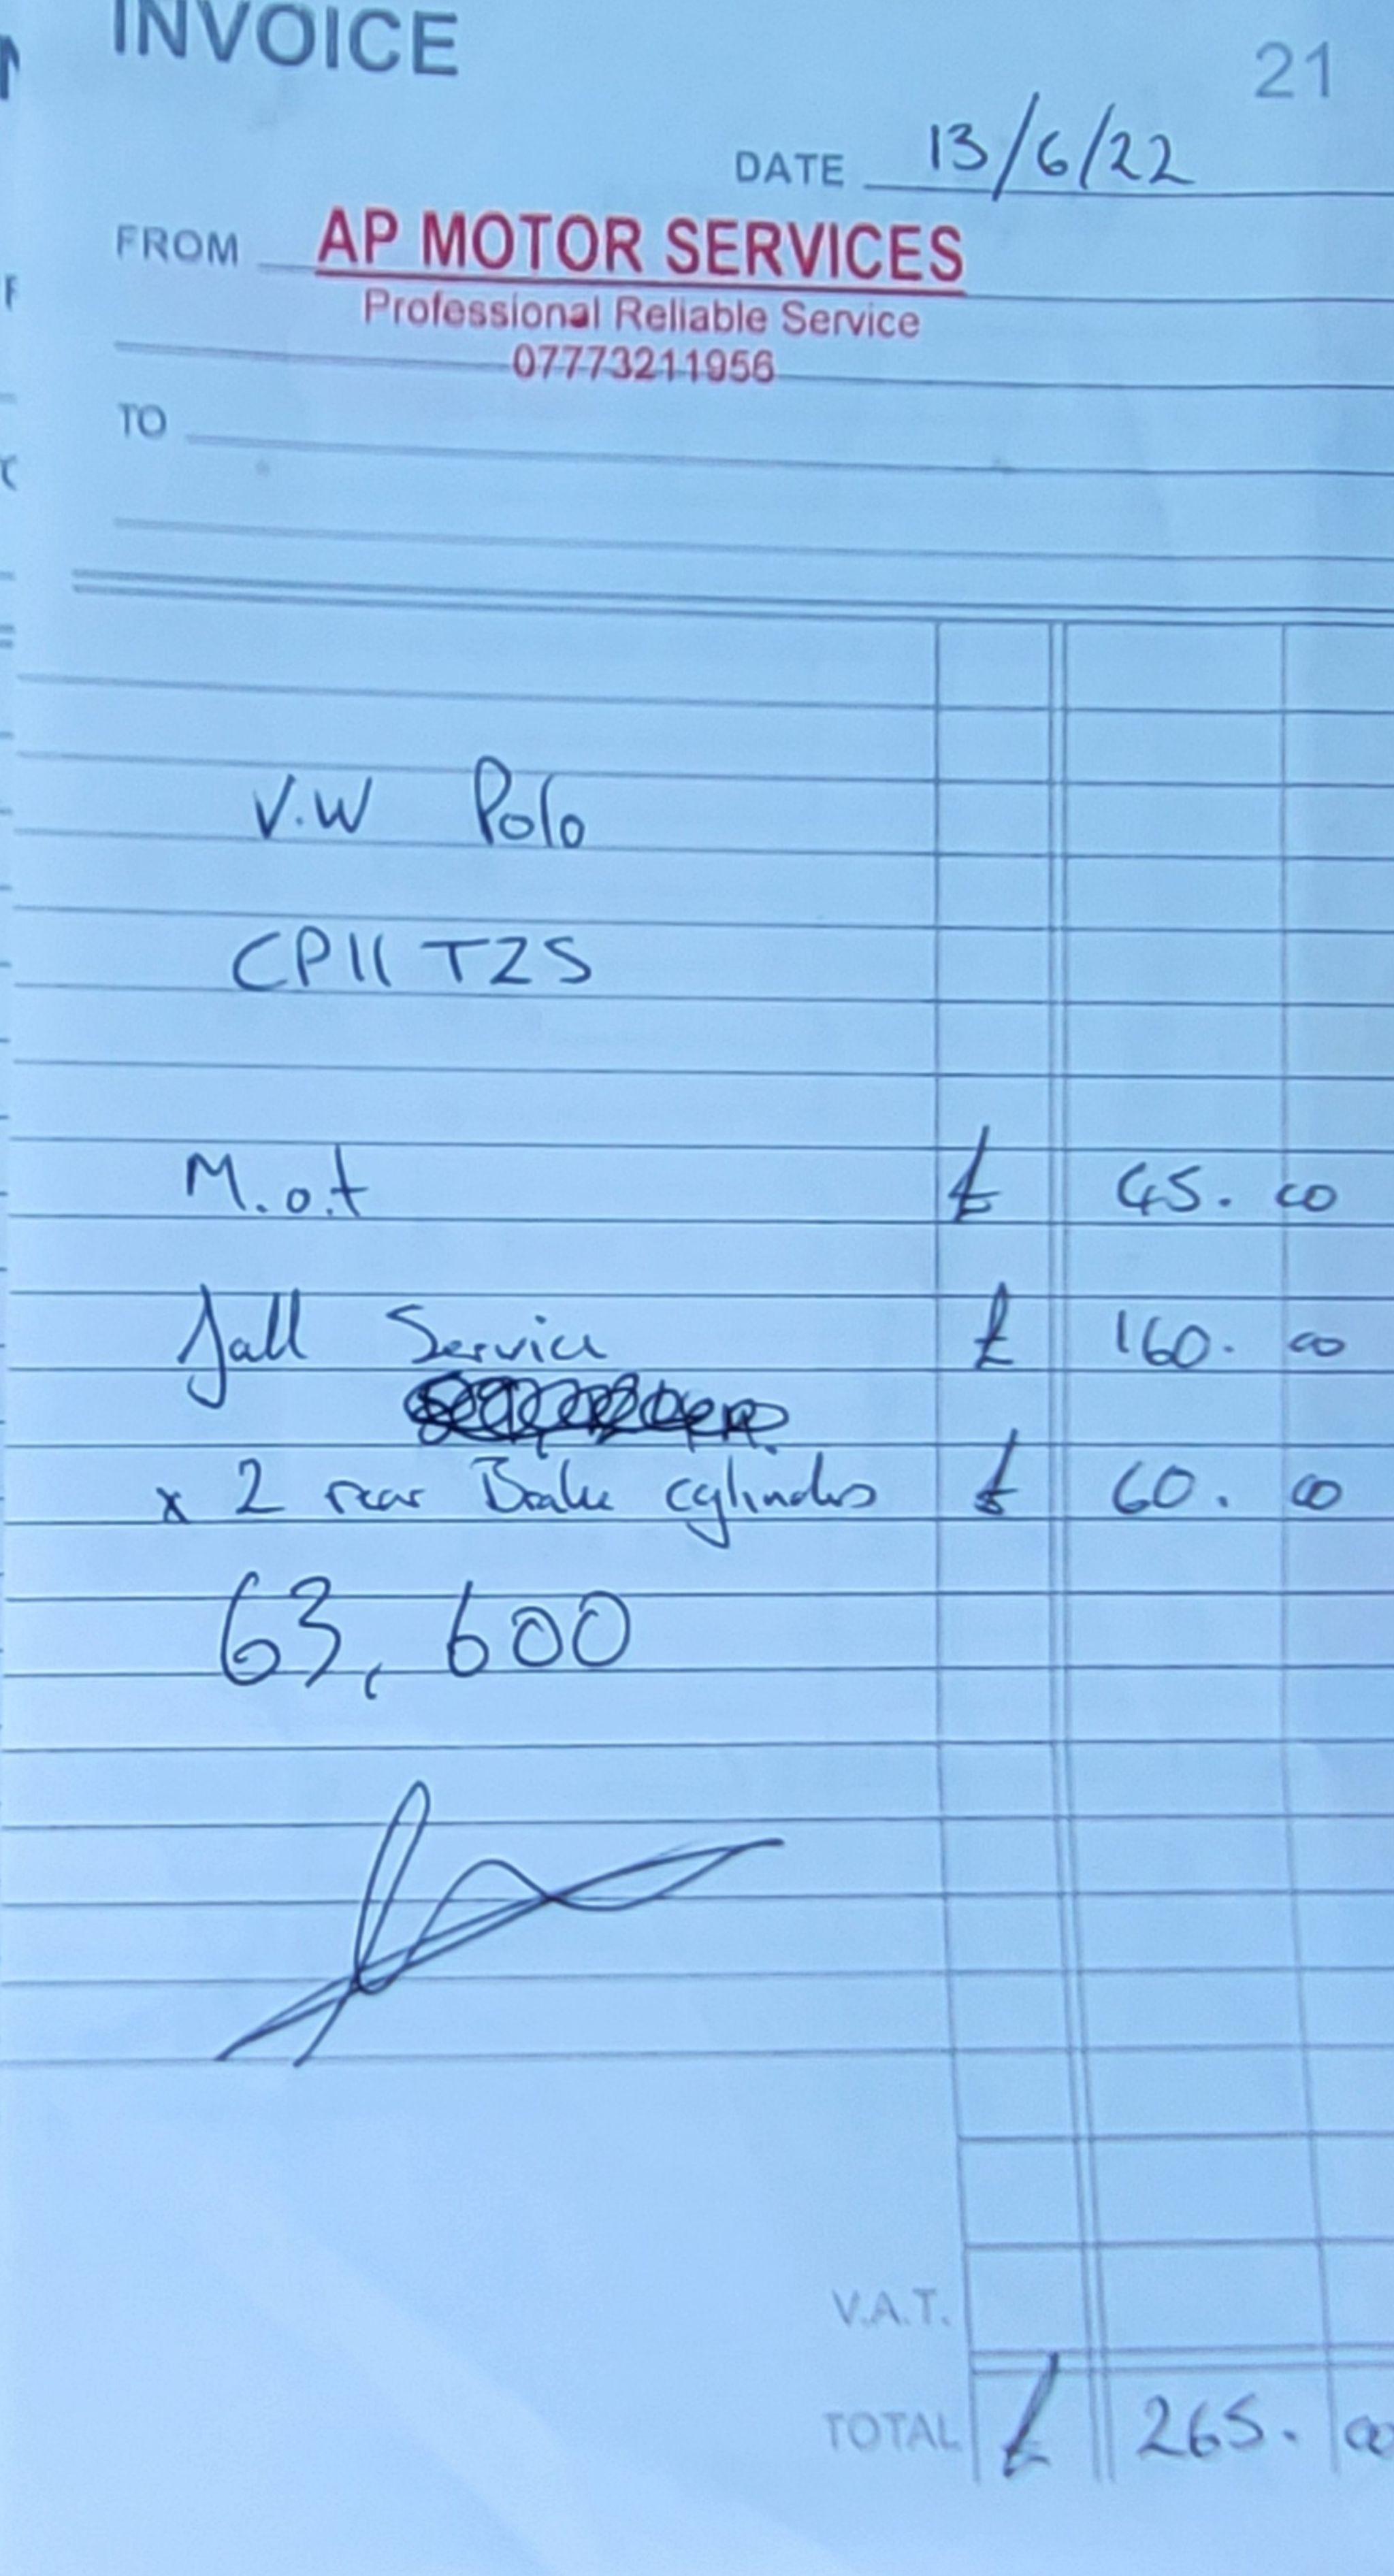 INVOICE
21
DATE 13/6/22
FROM AP MOTOR SERVICES
Professional Reliable Service
07773211956
TO
V.W Polo
CP11 TZS
M.o.t £ 45.00
full Service £ 160.00
x 2 rear Brake cylinders £ 60.00
63,600
V.A.T.
TOTAL £ 265.00